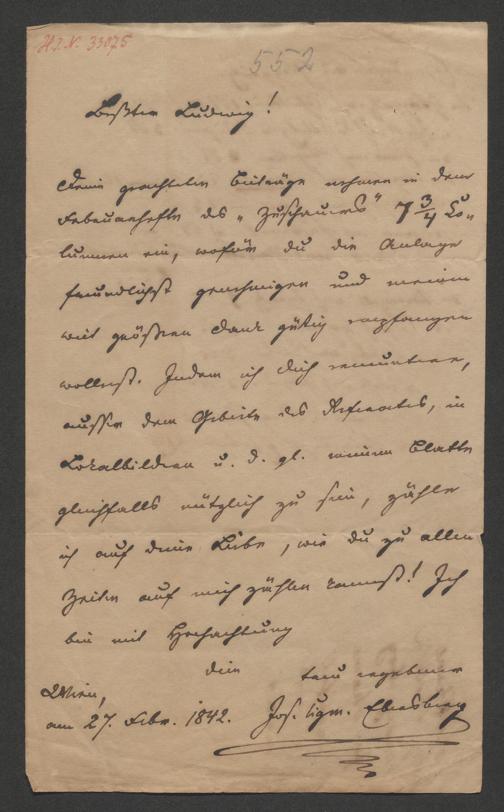 H.I.N. 33075
552
Beßter Ludwig!
Deine geachteten Beiträge nehmen in dem
Februarhefte des „Zuschauers" 7 3/4 Co-
lumnen ein, wofür du die Anlage
freundlichst genehmigen und meinen
weit größern Dank gütig empfangen
wollest. Indem ich dich ermuntere,
außer dem Gebiete des Referates, in
Lokalbildern u. d. gl. meinem Blatte
gleichfalls nützlich zu sein, zähle
ich auf deine Liebe, wie du zu allen
Zeiten auf mich zählen kannst! Ich
bin mit Hochachtung
dein treu ergebener
Wien,
am 27. Febr. 1842. Jos. Sigm. Ebersberg